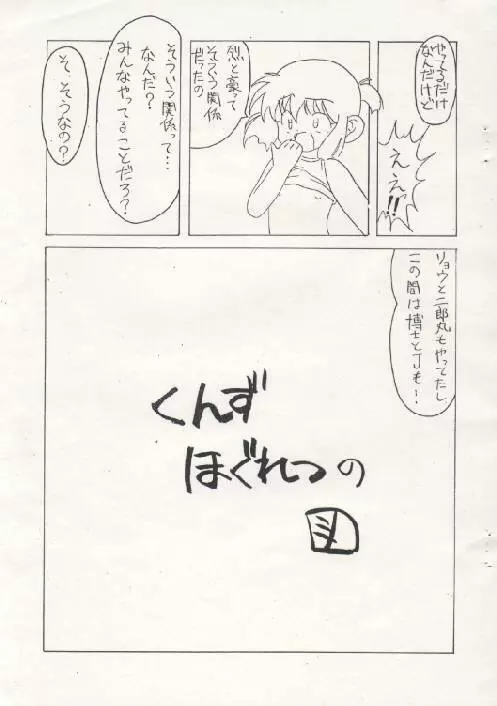 やってるだけ
なんだけど
ええ!!
烈と豪って
そういう関係
だったの
そういう関係って…
なんだ?
みんなやってることだろ?
そ、そうなの?
リョウと二郎丸もやってたし
この間は博士とJも…!
くんず
ほぐれつの
図